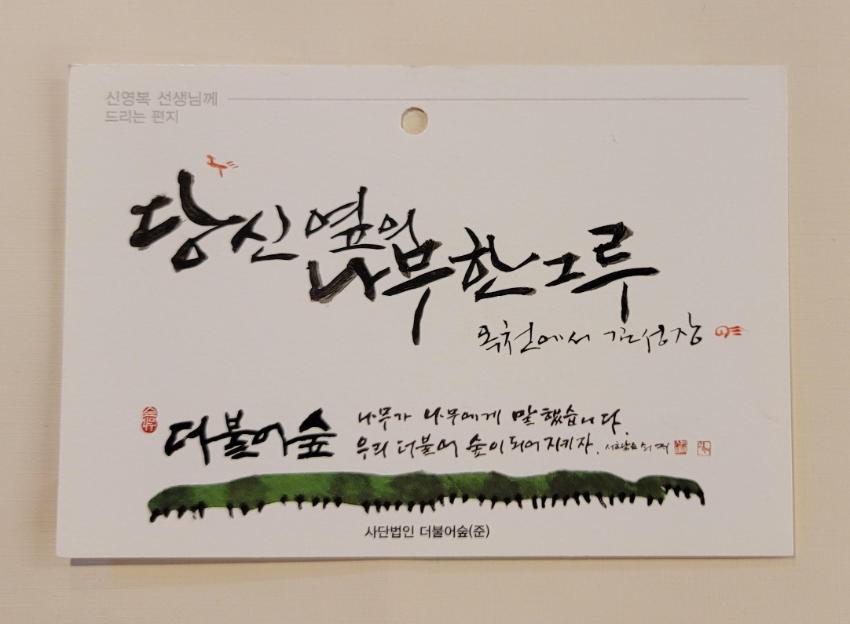 신영복 선생님께
드리는 편지
당신 옆의
나무 한그루
옥천에서
더불어숲
나무가 나무에게 말했습니다.
우리 더불어 숲이 되어 지키자.
사단법인 더불어숲(준)